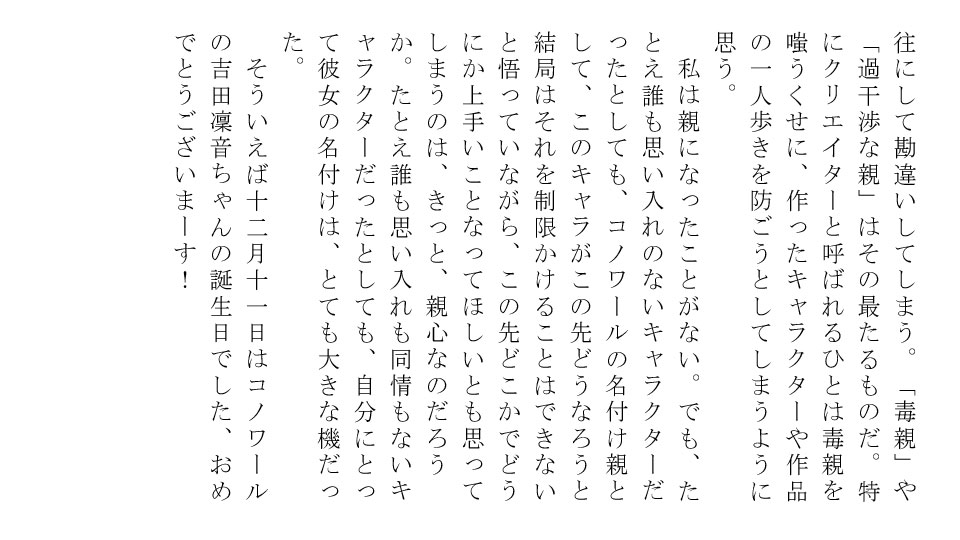 往にして勘違いしてしまう。「毒親」や
「過干渉な親」はその最たるものだ。特
にクリエイターと呼ばれるひとは毒親を
嗤うくせに、作ったキャラクターや作品
の一人歩きを防ごうとしてしまうように
思う。
　私は親になったことがない。でも、た
とえ誰も思い入れのないキャラクターだ
ったとしても、コノワールの名付け親と
して、このキャラがこの先どうなろうと
結局はそれを制限かけることはできない
と悟っていながら、この先どこかでどう
にか上手いことなってほしいとも思って
しまうのは、きっと、親心なのだろう
か。たとえ誰も思い入れも同情もないキ
ャラクターだったとしても、自分にとっ
て彼女の名付けは、とても大きな機だっ
た。
　そういえば十二月十一日はコノワール
の吉田凜音ちゃんの誕生日でした、おめ
でとうございまーす！